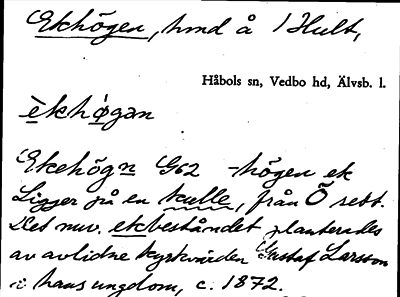 Ekhögen, hmd å 1 Hult,
Håbols sn, Vedbo hd, Älvsb. l.
èkhö̀gan
Ekehögn G62 -högen ek
Ligger på en kulle, från Ö sett.
Det nuv. ekbeståndet planterades
av avlidne kyrkvärden Gustaf Larsson
i hans ungdom, c. 1872.